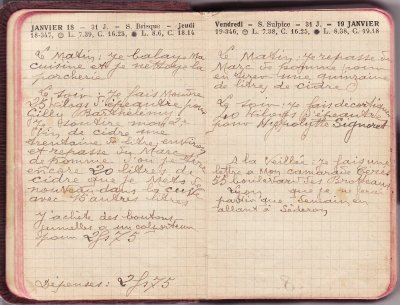 JANVIER 18 — 31 J. — S. Brisque — Jeudi
18-347, L. 7.39, C. 16.23, L. 8.6, C. 18.14
Le Matin: Je balay Ma
cuisine et je nettoye la
porcherie
Le soir: Je fais Moudre
d'épeautre pour
Cilly Barthelemy
Le soir Mon 2
de cidre une
trentaine de litres environ
et repasse du Marc
de Pomme d'ou je tire
encore 20 litres de
cidre que je Mets de
nouveau dans la cuve
avec autres litres
J'achète des boutons
jumelles a un colporteur
pour 2f 75
Dépenses: 2f 75
Vendredi — S. Sulpice — 31 J. — 19 JANVIER
19-346, L. 7.38, C. 16.25, L. 8.38, C. 19.18
Le Matin: Je repasse du
Marc de pomme pour
en tirer une quinzaine
de litres de cidre
Le soir: Je fais décortiquer
40 kilogs d'épeautre
pour Hippolyte Signoret
A la Veillée: Je fais une
lettre a Mon camarade
55 boulevard des Brotteaux
Lyon que je ne ferai
partir que demain en
allant à Séderon